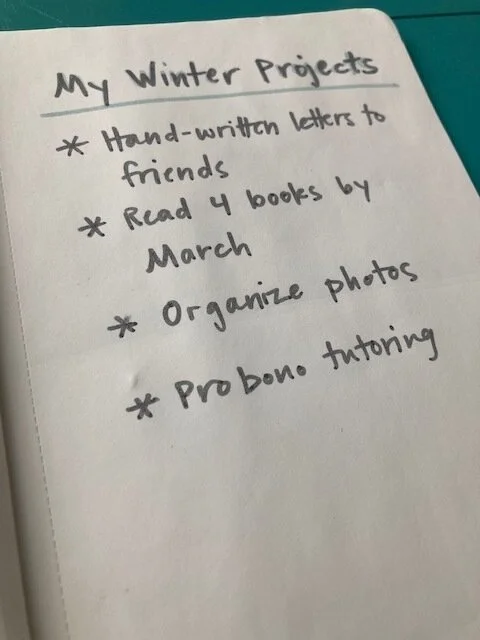 My Winter Projects
* Hand-written letters to
friends
* Read 4 books by
March
* Organize photos
* Pro bono tutoring